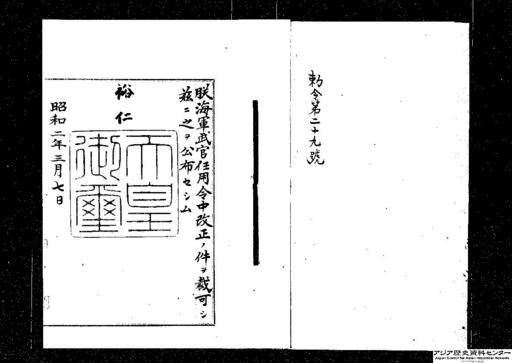 勅令第二十九號
朕海軍武官任用令中改正ノ件ヲ裁可シ
茲ニ之ヲ公布セシム
裕仁
天皇
御璽
昭和二年三月七日
アジア歴史資料センター
Japan Center for Asian Historical Records